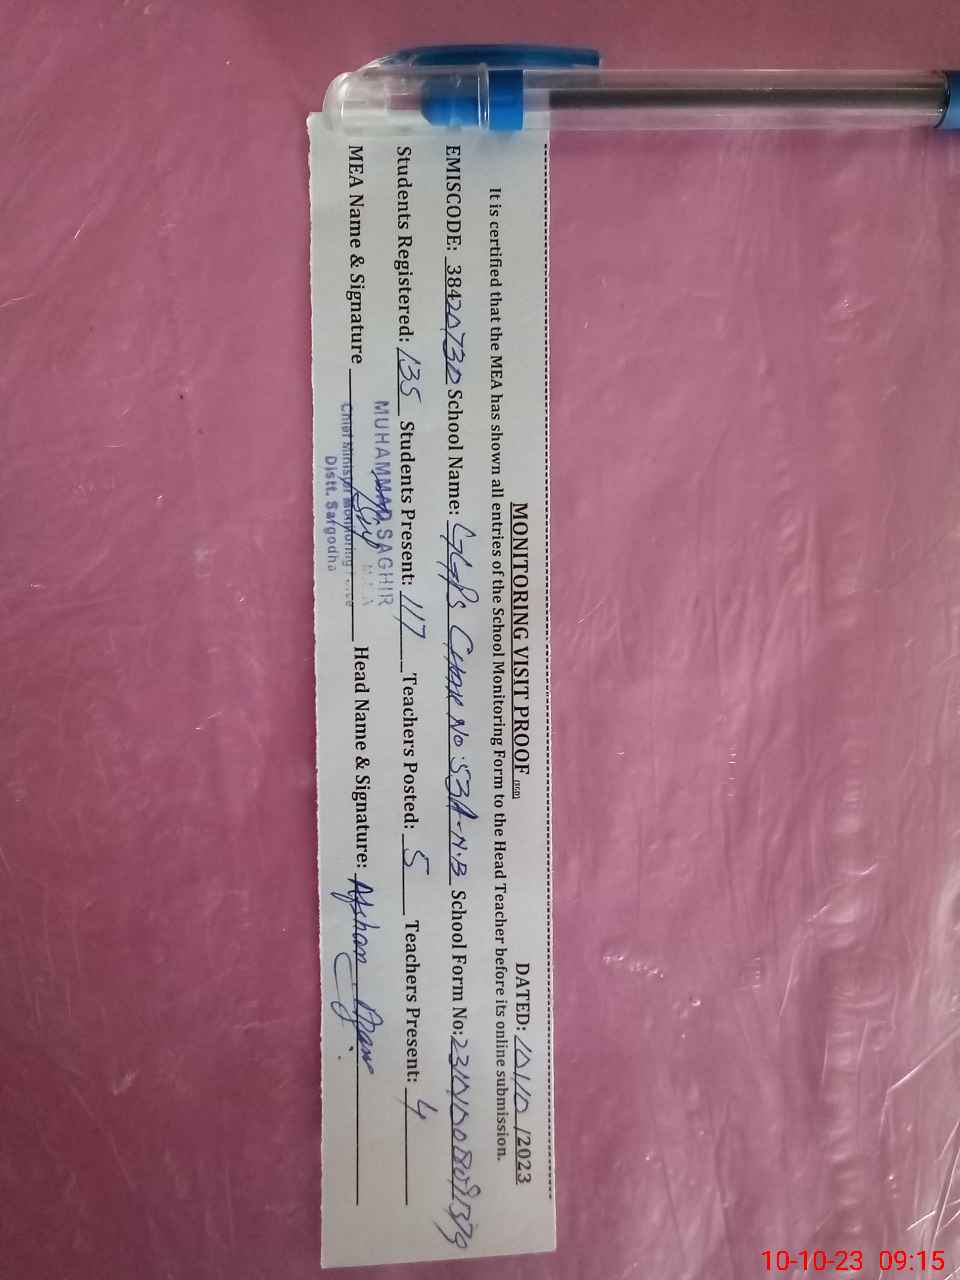 MONITORING VISIT PROOF (SGD) DATED: 10/10/2023
It is certified that the MEA has shown all entries of the School Monitoring Form to the Head Teacher before its online submission.
EMISCODE: 38420730 School Name: GGPS Chak No 53A-N.B School Form No:
Students Registered: 135 Students Present: 117 Teachers Posted: 5 Teachers Present: 4
MUHAMMAD SAGHIR
MEA
MEA Name & Signature Head Name & Signature: Afshan
Chief Minister Monitoring Force
Distt. Sargodha
10-10-23 09:15